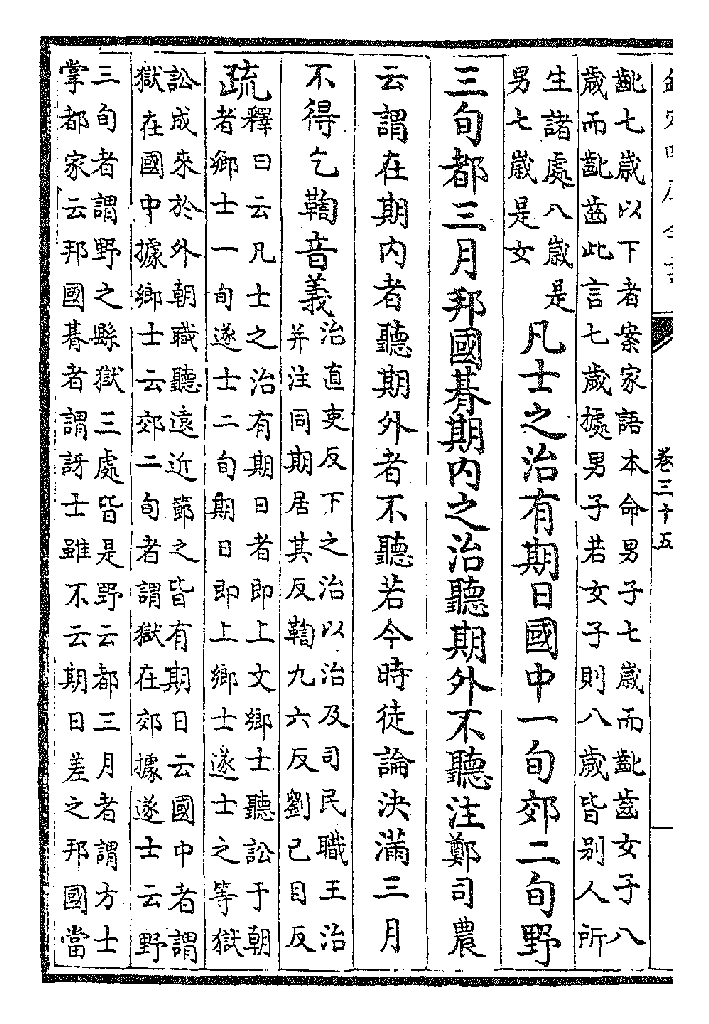 卷三十五
齔七歳以下者案家語本命男子七歳而齔齒女子八
歳而齔齒此言七歳據男子若女子則八歳皆别人所
生諸處八歳是
男七歳是女
凡士之治有期日國中一旬郊二旬野
三旬都三月邦國朞期内之治聽期外不聽注鄭司農
云謂在期内者聽期外者不聽若今時徒論决滿三月
不得乞鞫音義
治直吏反下之治以治及司民職王治
并注同期居其反鞫九六反劉己目反
疏
釋曰云凡士之治有期日者即上文鄉士聽訟于朝
者鄉士一旬遂士二旬期日即上鄉士遂士之等獄
訟成來於外朝職聽遠近節之皆有期日云國中者謂
獄在國中據鄉士云郊二旬者謂獄在郊據遂士云野
三旬者謂野之縣獄三處皆是野云都三月者謂方士
掌都家云邦國朞者謂訝士雖不云期日差之邦國當